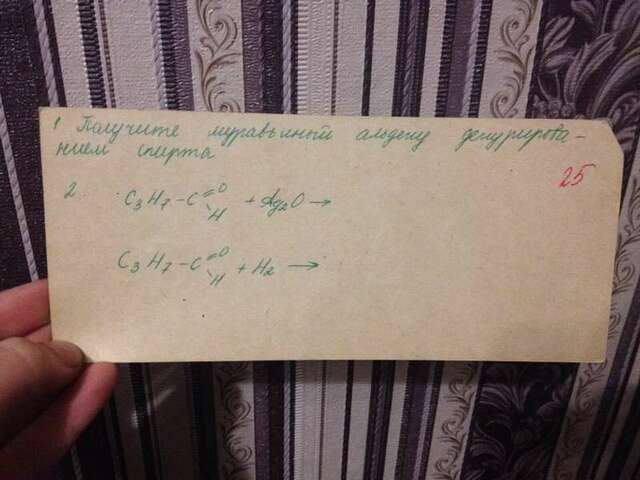 1 Получите муравьиный альдегид дегидрирова-
нием спирта
25
2 C3H7-C=O + Ag2O →
H
C3H7-C=O + H2 →
H